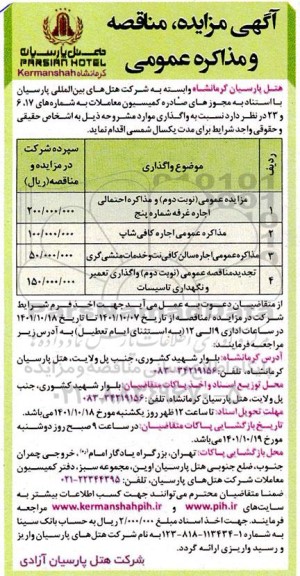 آگهی مزایده، مناقصه
و مذاکره عمومی
هتل پارسیان
PARSIAN HOTEL
کرمانشاه Kermanshah
هتل پارسیان کرمانشاه وابسته به شرکت هتل‌های بین‌المللی پارسیان
با استناد به مجوزهای صادره کمیسیون معاملات به شماره‌های ۱۷، ۶
و ۲۳ در نظر دارد نسبت به واگذاری موارد مشروحه ذیل به اشخاص حقیقی
و حقوقی واجد شرایط برای مدت یکسال شمسی اقدام نماید.
ردیف موضوع واگذاری سپرده شرکت در مزایده و مناقصه (ریال)
۱ مزایده عمومی (نوبت دوم) و مذاکره احتمالی اجاره غرفه شماره پنج ۲۰۰/۰۰۰/۰۰۰
۲ مذاکره عمومی اجاره کافی‌شاپ ۱۰۰/۰۰۰/۰۰۰
۳ مذاکره عمومی اجاره سالن کافی‌نت و خدمات منشی‌گری ۵۰/۰۰۰/۰۰۰
۴ تجدید مناقصه عمومی (نوبت دوم) واگذاری تعمیر و نگهداری تاسیسات ۱۵۰/۰۰۰/۰۰۰
از متقاضیان دعوت به عمل می‌آید جهت اخذ فرم شرایط
شرکت در مزایده / مناقصه از تاریخ ۱۴۰۱/۱۰/۰۷ تا تاریخ ۱۴۰۱/۱۰/۱۸
در ساعات اداری ۹ الی ۱۲ (به استثنای ایام تعطیل) به آدرس زیر
مراجعه فرمایند:
آدرس کرمانشاه: بلوار شهید کشوری، جنب پل ولایت، هتل پارسیان
کرمانشاه، تلفن: ۳۴۲۱۹۱۵۶-۰۸۳
محل توزیع اسناد و اخذ پاکات متقاضیان: بلوار شهید کشوری، جنب
پل ولایت، هتل پارسیان کرمانشاه، تلفن: ۳۴۲۱۹۱۵۶-۰۸۳
مهلت تحویل اسناد: تا ساعت ۱۲ ظهر روز یکشنبه مورخ ۱۴۰۱/۱۰/۱۸ می‌باشد.
تاریخ بازگشایی پاکات متقاضیان: در ساعت ۹ صبح روز دوشنبه
مورخ ۱۴۰۱/۱۰/۱۹ می‌باشد.
محل بازگشایی پاکات: تهران، بزرگراه یادگار امام(ره)، خروجی چمران
جنوب، ضلع جنوبی هتل پارسیان اوین، مجموعه سبز، دفتر کمیسیون
معاملات شرکت هتل‌های پارسیان، تلفن: ۲۲۳۴۴۲۹۵-۰۲۱
ضمنا متقاضیان محترم می‌توانند جهت کسب اطلاعات بیشتر به
سایت‌های www.pih.ir و www.kermanshahpih.ir مراجعه
فرمایند. جهت اخذ اسناد مبلغ ۲/۰۰۰/۰۰۰ ریال به حساب بانک سینا
به شماره ۱-۱۱۳۴۳۴-۸۱۸-۱۲۳ به نام شرکت هتل‌های پارسیان واریز
و رسید واریزی ارائه گردد.
شرکت هتل پارسیان آزادی